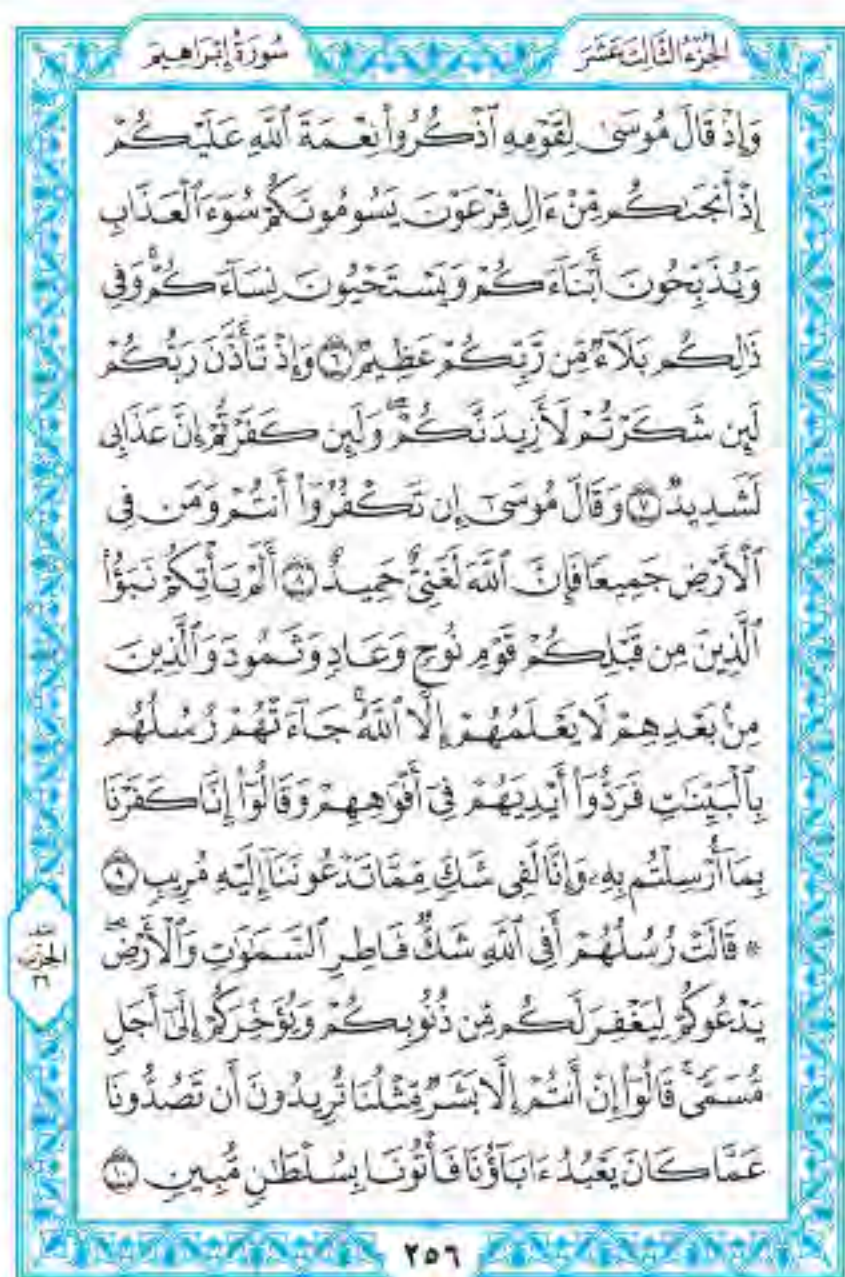 الجُزْءُ الثَّالِثَ عَشَرَ
سُورَةُ إِبْرَاهِيمَ
وَإِذْ قَالَ مُوسَىٰ لِقَوْمِهِ ٱذْكُرُواْ نِعْمَةَ ٱللَّهِ عَلَيْكُمْ
إِذْ أَنجَىٰكُم مِّنْ ءَالِ فِرْعَوْنَ يَسُومُونَكُمْ سُوٓءَ ٱلْعَذَابِ
وَيُذَبِّحُونَ أَبْنَآءَكُمْ وَيَسْتَحْيُونَ نِسَآءَكُمْۚ وَفِى
ذَٰلِكُم بَلَآءٌ مِّن رَّبِّكُمْ عَظِيمٌ ٦ وَإِذْ تَأَذَّنَ رَبُّكُمْ
لَئِن شَكَرْتُمْ لَأَزِيدَنَّكُمْۖ وَلَئِن كَفَرْتُمْ إِنَّ عَذَابِى
لَشَدِيدٌ ٧ وَقَالَ مُوسَىٰٓ إِن تَكْفُرُوٓاْ أَنتُمْ وَمَن فِى
ٱلْأَرْضِ جَمِيعًا فَإِنَّ ٱللَّهَ لَغَنِىٌّ حَمِيدٌ ٨ أَلَمْ يَأْتِكُمْ نَبَؤُاْ
ٱلَّذِينَ مِن قَبْلِكُمْ قَوْمِ نُوحٍ وَعَادٍ وَثَمُودَ وَٱلَّذِينَ
مِنۢ بَعْدِهِمْ لَا يَعْلَمُهُمْ إِلَّا ٱللَّهُۚ جَآءَتْهُمْ رُسُلُهُم
بِٱلْبَيِّنَٰتِ فَرَدُّوٓاْ أَيْدِيَهُمْ فِىٓ أَفْوَٰهِهِمْ وَقَالُوٓاْ إِنَّا كَفَرْنَا
بِمَآ أُرْسِلْتُم بِهِۦ وَإِنَّا لَفِى شَكٍّ مِّمَّا تَدْعُونَنَآ إِلَيْهِ مُرِيبٍ ٩
۞ قَالَتْ رُسُلُهُمْ أَفِى ٱللَّهِ شَكٌّ فَاطِرِ ٱلسَّمَٰوَٰتِ وَٱلْأَرْضِۖ
يَدْعُوكُمْ لِيَغْفِرَ لَكُم مِّن ذُنُوبِكُمْ وَيُؤَخِّرَكُمْ إِلَىٰٓ أَجَلٍ
مُّسَمًّىۚ قَالُوٓاْ إِنْ أَنتُمْ إِلَّا بَشَرٌ مِّثْلُنَا تُرِيدُونَ أَن تَصُدُّونَا
عَمَّا كَانَ يَعْبُدُ ءَابَآؤُنَا فَأْتُونَا بِسُلْطَٰنٍ مُّبِينٍ ١٠
نصف
الحزب
٢٦
٢٥٦